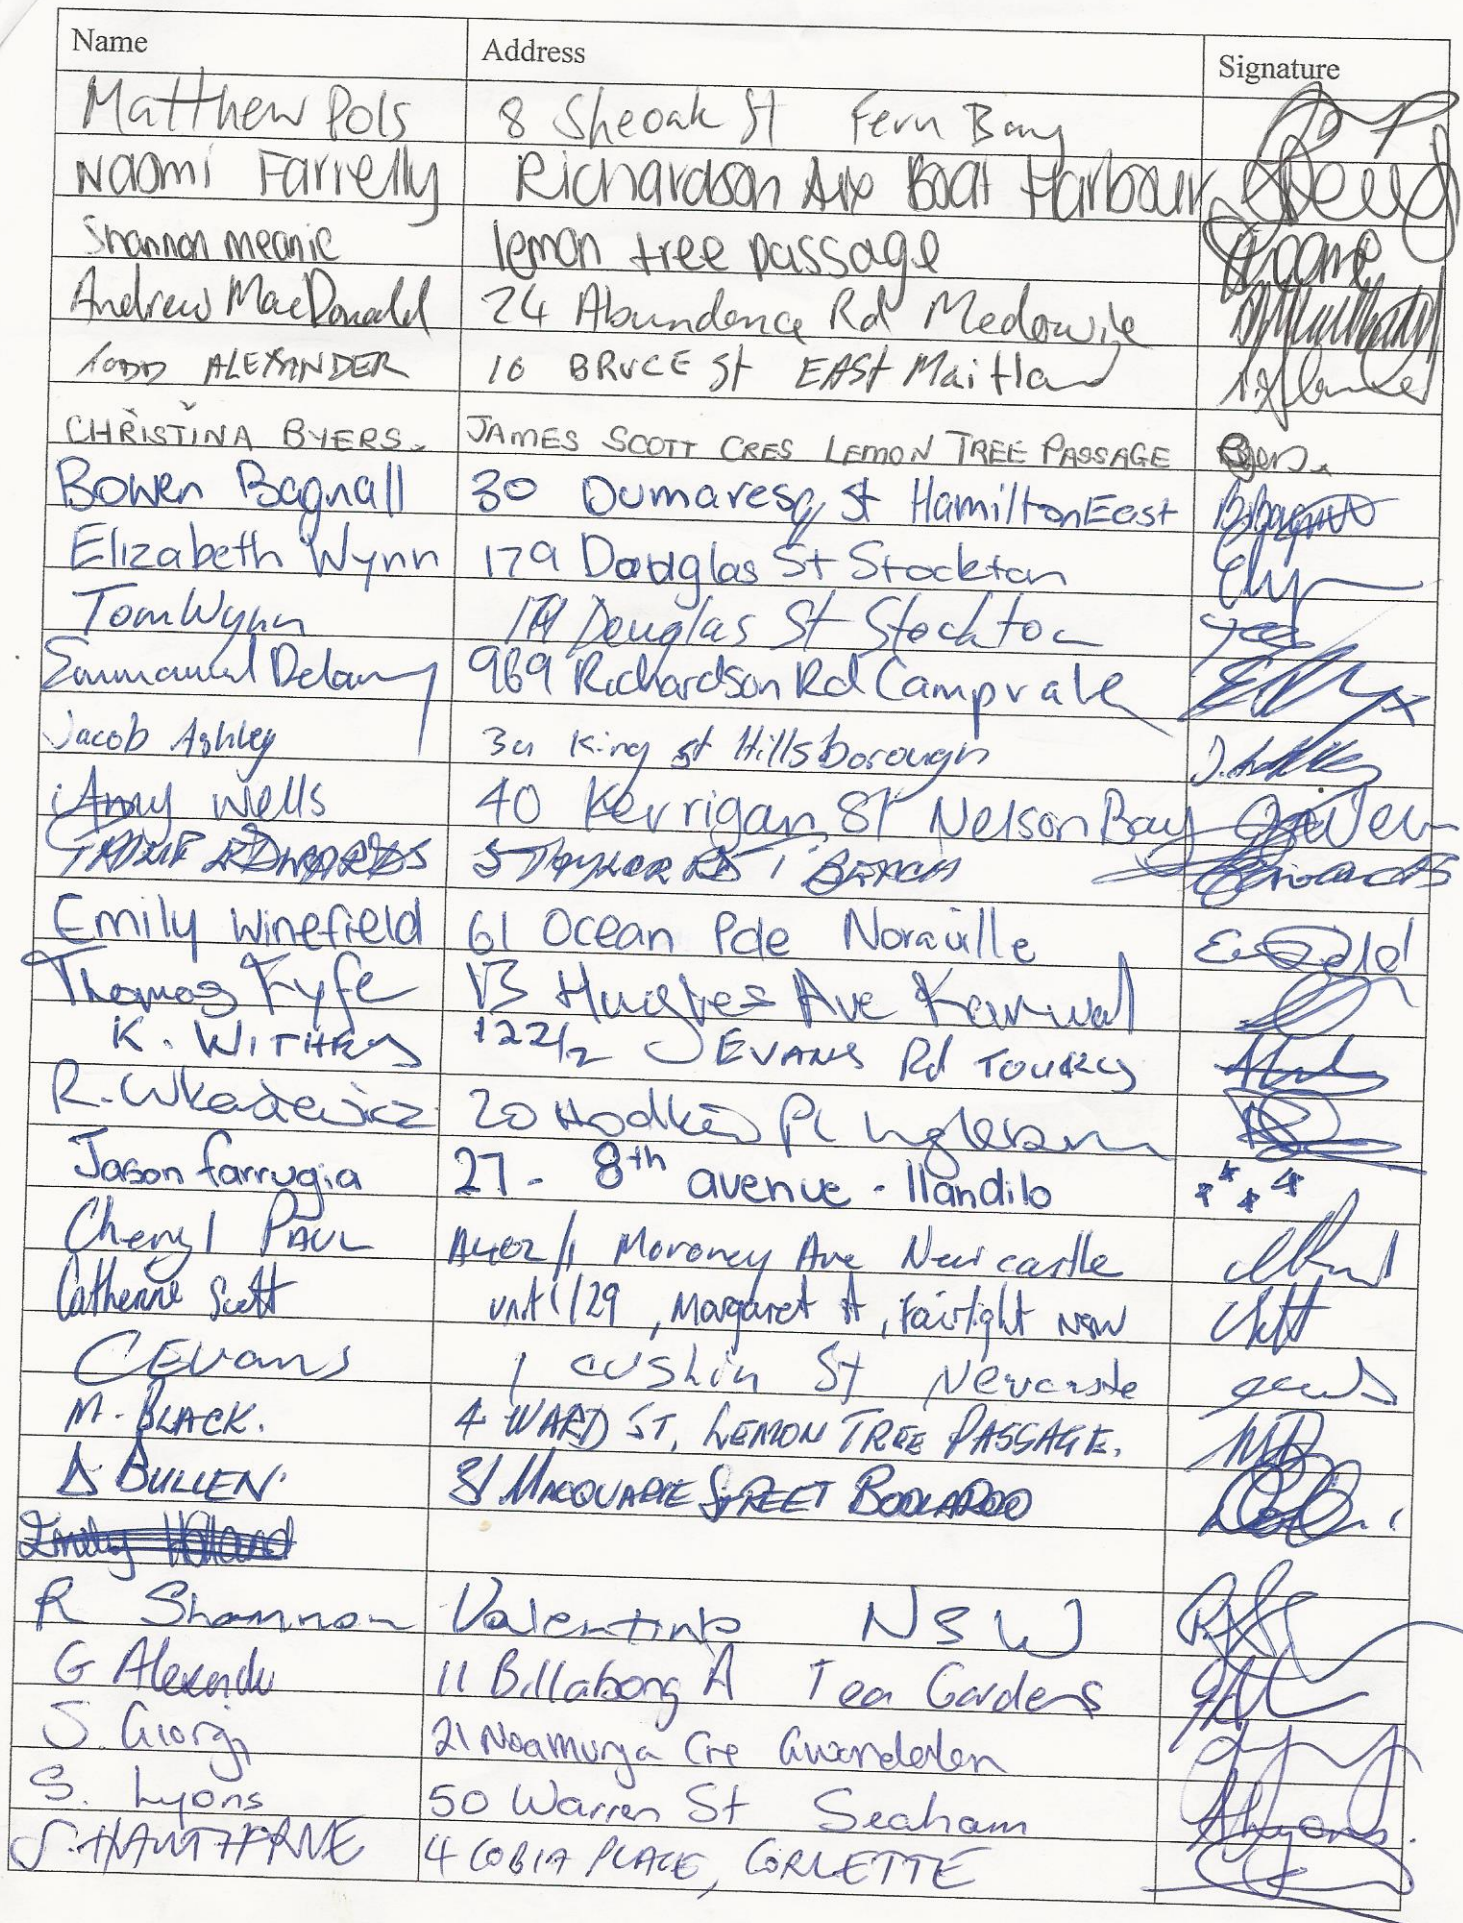 Name Address Signature
Matthew Pols 8 Sheoak St Fern Bay
Naomi Farrelly Richardson Ave Boat Harbour
Shannon meanie lemon tree passage
Andrew MacDonald 24 Abundance Rd Medowie
TODD ALEXANDER 16 BRUCE St EAST Maitland
CHRISTINA BYERS. JAMES SCOTT CRES LEMON TREE PASSAGE Byers.
Bowen Bagnall 30 Dumaresq St Hamilton East B.Bagnall
Elizabeth Wynn 179 Douglas St Stockton
Tom Wynn 179 Douglas St Stockton
Emmanuel Delaney 969 Richardson Rd Campvale
Jacob Ashley 3a King st Hillsborough
Amy Wells 40 Kerrigan St Nelson Bay
EDWARDS 5 TAYLOR RD BEACH Edwards
Emily Winefield 61 Ocean Pde Noraville
Thomas Fyfe 13 Hughes Ave Kanwal
K. WITHERS 122/2 EVANS Rd TOUKLEY
R. 20 Pl
Jason farrugia 27 - 8th avenue - llandilo
Cheryl PAUL A402/1 Moroney Ave Newcastle
Catherine Scott unit 1/29, Margaret St, Fairlight NSW
C Evans 1 Cushin St Newcastle
M. BLACK. 4 WARD ST, LEMON TREE PASSAGE. MB
D BULLEN. 31 MACQUARIE STREET BOOLAROO
Emily Holland
R Shannon Valentine NSW
G Alexander 11 Billabong Tea Gardens
S. Giorgi 21 Noamunga Cre Gwandalan
S. Lyons 50 Warren St Seaham SLyons.
J. HAWTHORNE 4 COBIA PLACE, CORLETTE